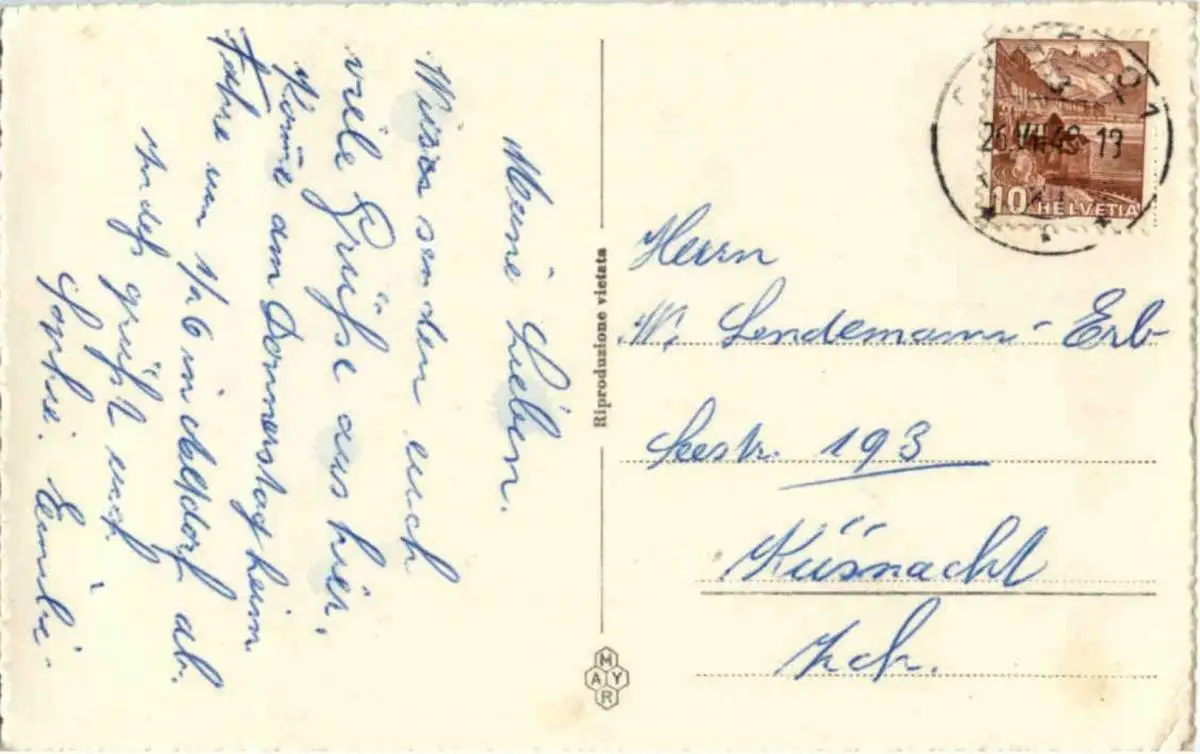 Meine Lieben.
Wir senden euch
viele Grüsse aus hier,
Komme am Donnerstag heim
Fahre um 1/2 6 in Altdorf ab.
Indess grüsst euch
Sophie. Emilie.
Riproduzione vietata
MAYR
26.VII.48-19
10 HELVETIA
Herrn
W. Lendemann-Erb
Seestr. 193
Küsnacht
Zch.